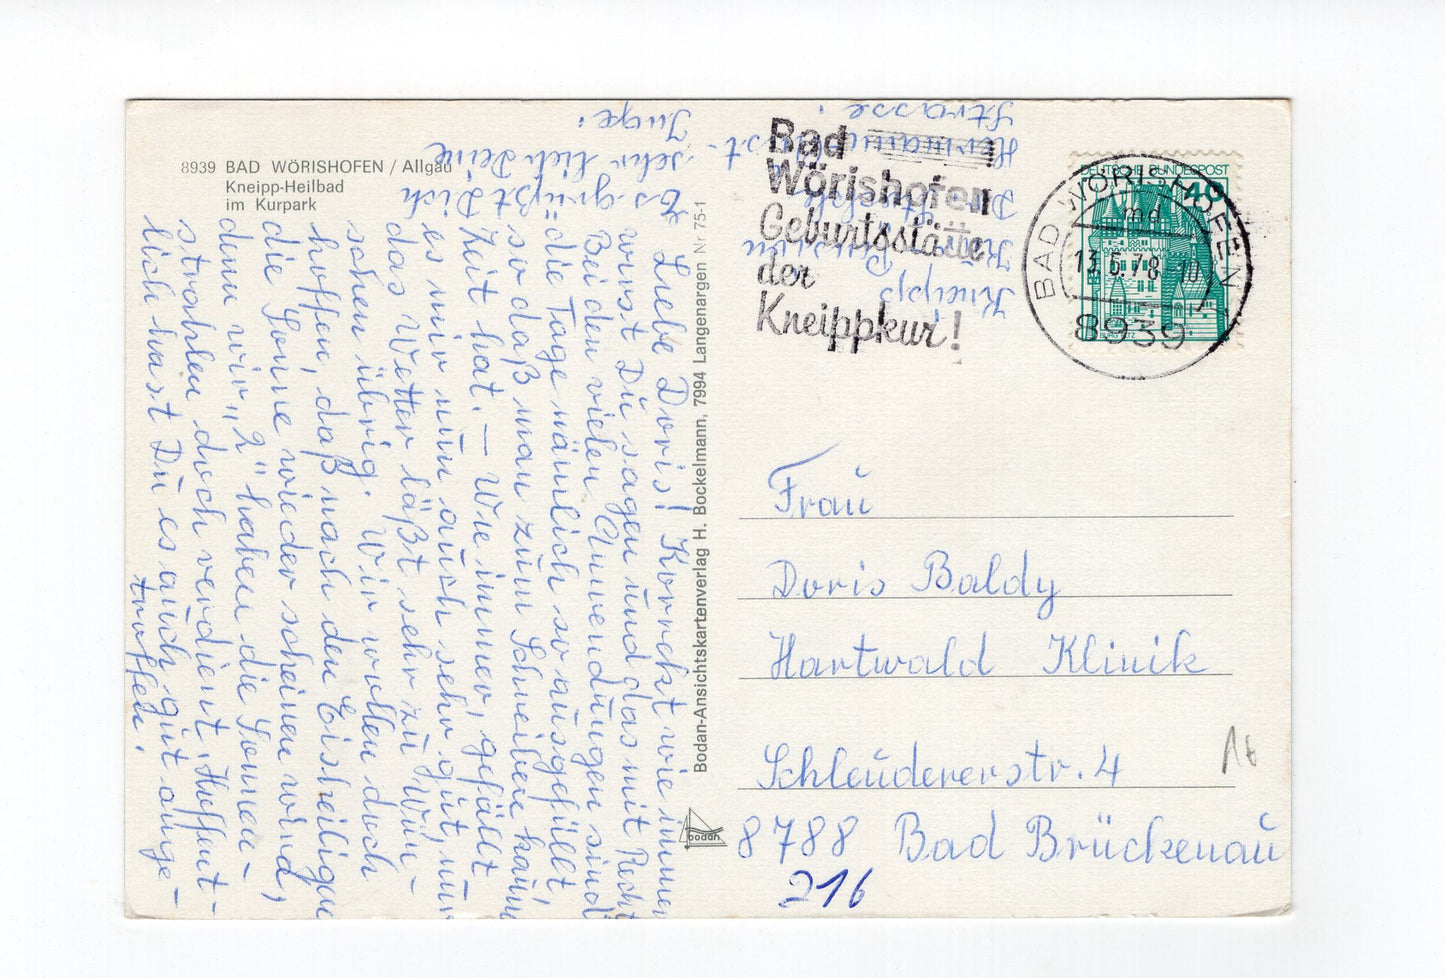 8939 BAD WÖRISHOFEN / Allgäu
Kneipp-Heilbad
im Kurpark
Liebe Doris! Korrekt wie immer
wirst Du sagen und das mit Recht.
Bei den vielen Anwendungen sind
die Tage nämlich so ausgefüllt,
so daß man zum Schreiben kaum
Zeit hat. — Wie immer, gefällt
es mir nun auch sehr gut, nur
das Wetter läßt sehr zu Wün-
schen übrig. Wir wollen doch
hoffen, daß nach den Eisheiligen
die Sonne wieder scheinen wird,
denn wir „2" haben die Sonnen-
strahlen doch verdient. Hoffent-
lich hast Du es auch gut ange-
troffen.
Es grüßt Dich
sehr lieb Deine
Inge.
Strasse
Kneipp
Bodan-Ansichtskartenverlag H. Bockelmann, 7994 Langenargen Nr 75-1
bodan
Bad
Wörishofen
Geburtsstätte
der
Kneippkur!
DEUTSCHE BUNDESPOST
40
BAD WÖRISHOFEN
md
13.5.78-10
8939
Frau
Doris Baldy
Hartwald Klinik
Schleudererstr. 4
8788 Bad Brückenau
216